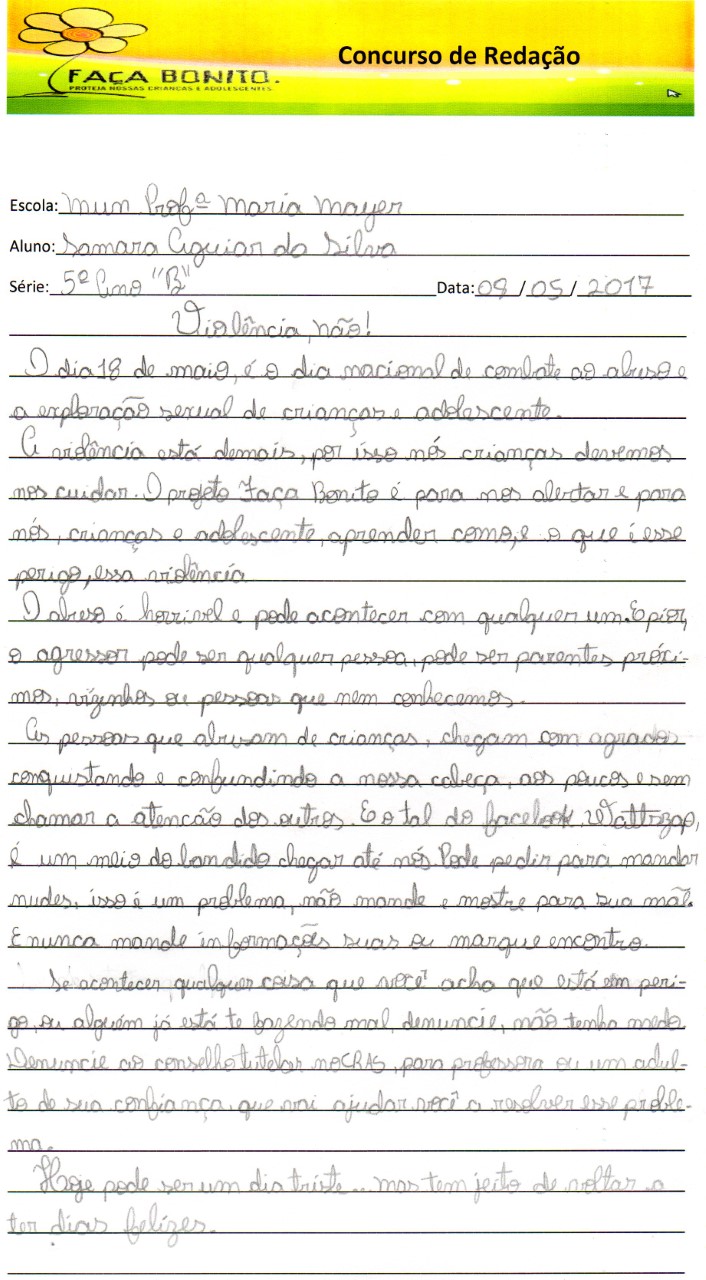 Concurso de Redação
FAÇA BONITO.
PROTEJA NOSSAS CRIANÇAS E ADOLESCENTES.
Escola: mum Profª Maria Mayer
Aluno: Samara Aguiar da Silva
Série: 5º Ano "B" Data: 09/05/2017
Violência, não!
O dia 18 de maio, é o dia nacional de combate ao abuso e
a exploração sexual de crianças e adolescente.
A violência está demais, por isso nós crianças devemos
nos cuidar. O projeto Faça Bonito é para nos alertar e para
nós, crianças e adolescente, aprender como, e o que é esse
perigo, essa violência
O abuso é horrivel e pode acontecer com qualquer um. E pior,
o agressor pode ser qualquer pessoa, pode ser parentes próxi-
mos, vizinhos ou pessoas que nem conhecemos.
As pessoas que abusam de crianças, chegam com agrados
conquistando e confundindo a nossa cabeça, aos poucos e sem
chamar a atencão dos outros. E o tal do facebook, Wattzap,
é um meio do bandido chegar até nós. Pode pedir para mandar
nudes, isso é um problema, não mande e mostre para sua mãe.
E nunca mande informações suas ou marque encontro.
Se acontecer qualquer coisa que você acha que está em peri-
go, ou alguém já está te fazendo mal, denuncie, não tenha medo.
Denuncie ao conselho tutelar no CRAS, para professora ou um adul-
to de sua confiança, que vai ajudar você a resolver esse proble-
ma.
Hoje pode ser um dia triste... mas tem jeito de voltar a
ter dias felizes.